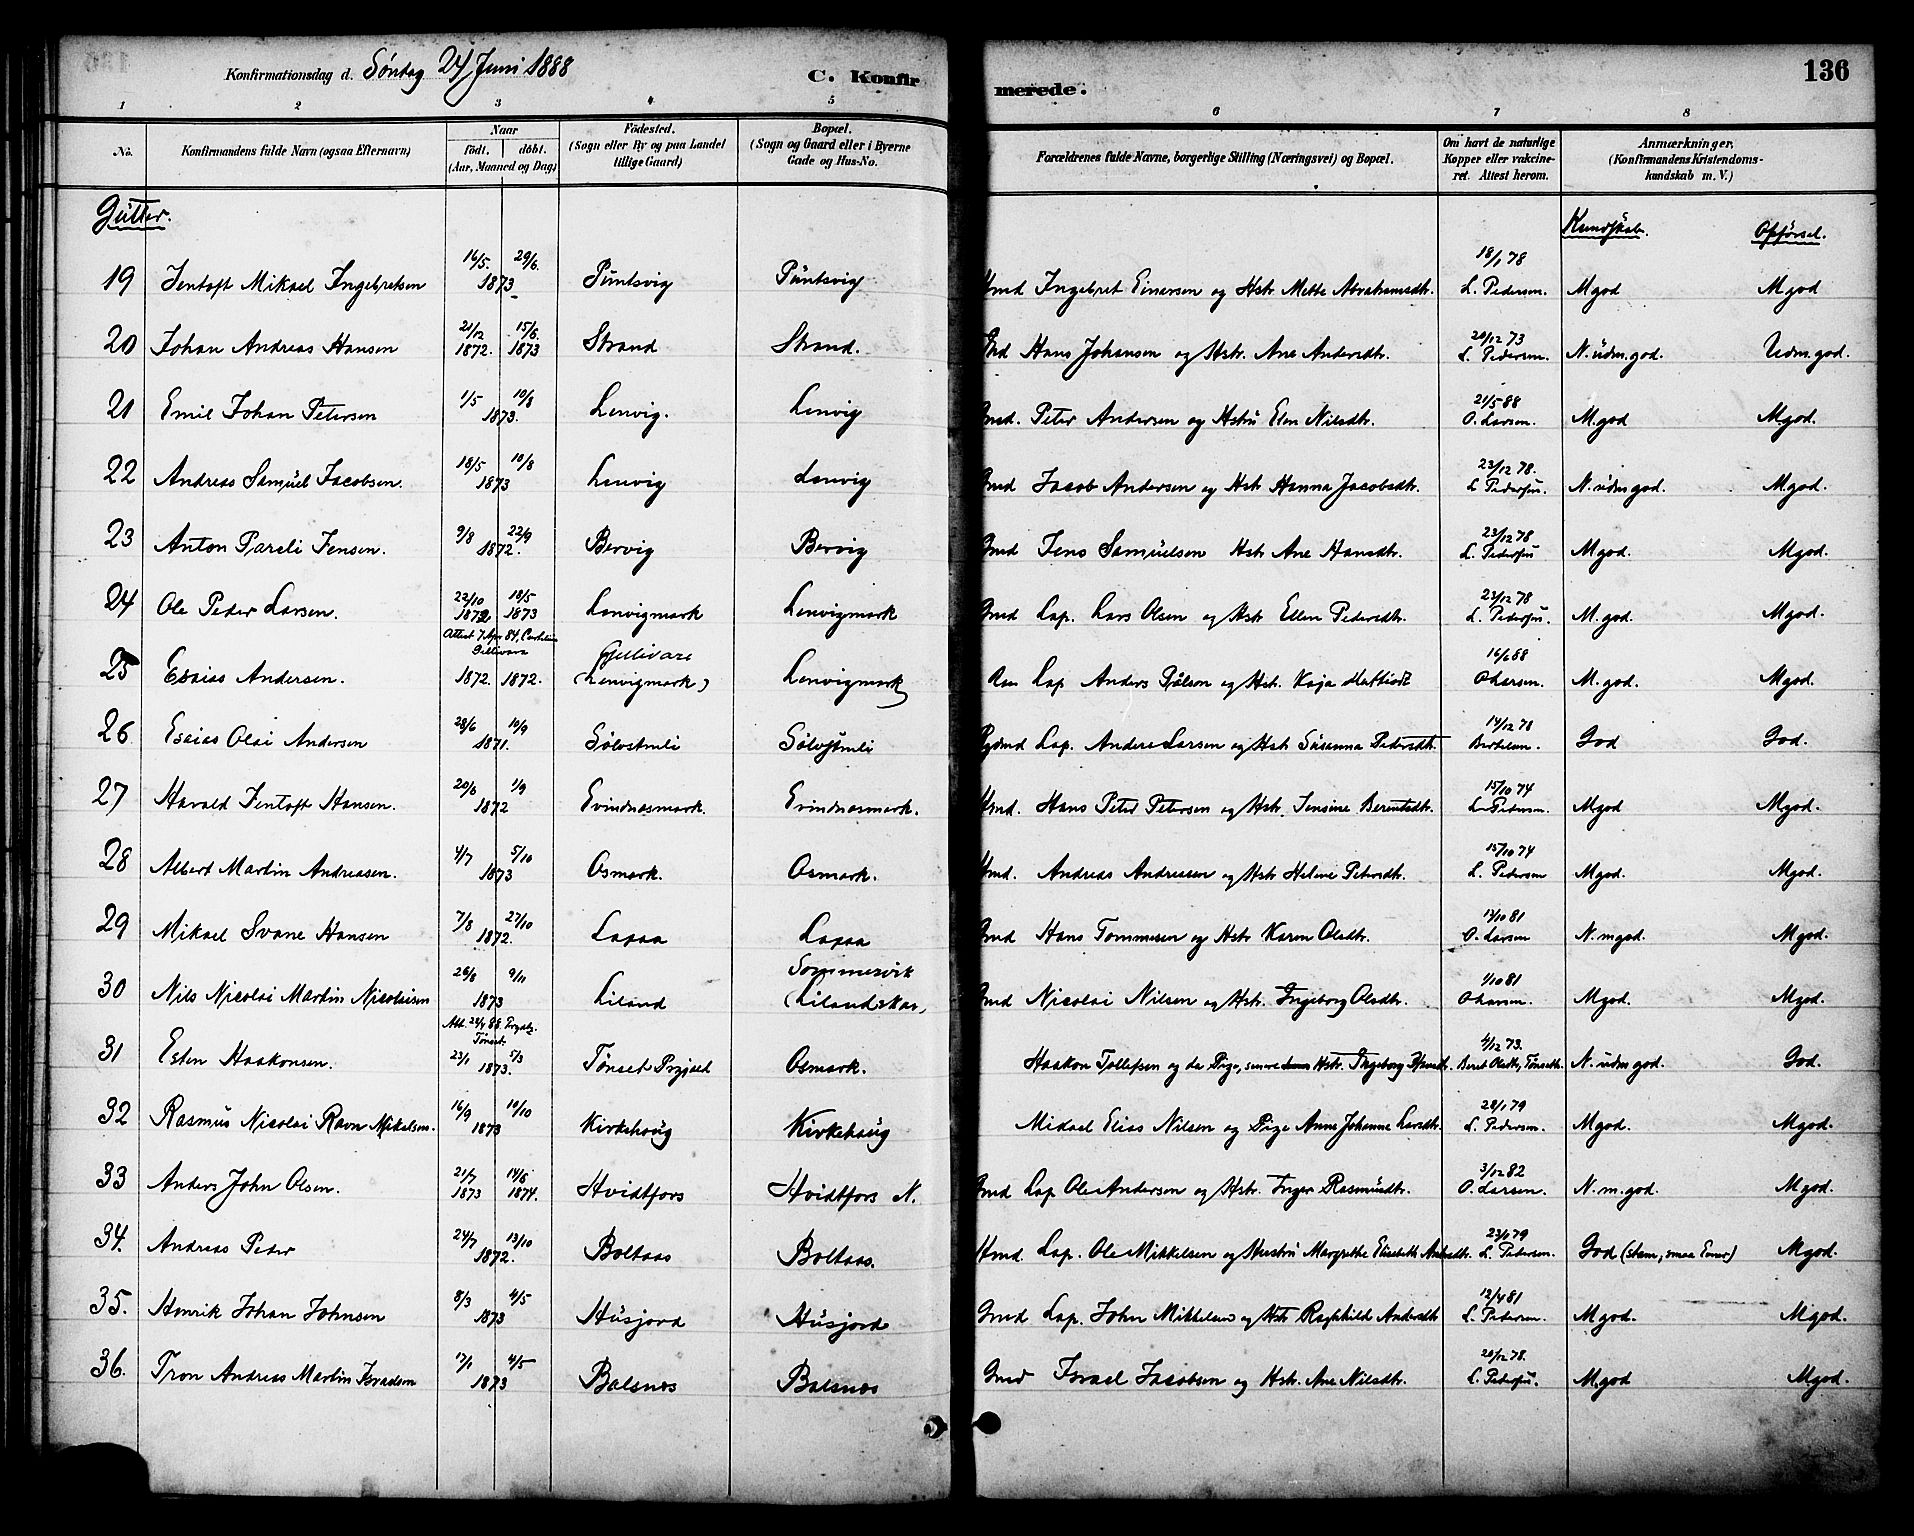 136
Konfirmationsdag d. Søndag 24 Juni 1888 C. Konfirmerede.
1 2 3 4 5 6 7 8
No. Konfirmandens fulde Navn (ogsaa Efternavn) Naar födt. döbt. (Aar, Maaned og Dag) Födested. (Sogn eller By og paa Landet tillige Gaard) Bopæl. (Sogn og Gaard eller i Byerne Gade og Hus-No. Forældrenes fulde Navne, borgerlige Stilling (Næringsvei) og Bopæl. Om havt de naturlige Kopper eller vakcineret. Attest herom. Anmærkninger. (Konfirmandens Kristendomskundskab m. V.)
Gutter. Kundskab. Opførsel.
19 Jentoft Mikael Ingebretsen 16/5. 29/6. 1873 Puntsvig Puntsvig Gmd Ingebret Einarsen og Hstr Mette Abrahamsdtr. 18/1 78 L. Pedersen. Mgod Mgod
20 Johan Andreas Hansen 21/12 1872. 15/6. 1873 Strand Strand. Gmd Hans Johansen og Hstr. Ane Andersdtr. 20/12 73 L. Pedersen. N. udm.god. Udm.god.
21 Emil Johan Petersen 1/5 10/8 1873. Lenvig. Lenvig Gmd. Peter Andersen og Hstru Elen Nilsdtr. 21/5 88 O. Larsen. M.god Mgod.
22 Andreas Samuel Jacobsen. 18/5 10/8 1873 Lenvig Lenvig Gmd Jacob Andersen og Hstr Hanna Jacobsdtr. 23/12 78. L Pedersen. N. udm god. Mgod.
23 Anton Pareli Jensen. 9/8 22/9 1872. Bervig Bervig Gmd Jens Samuelsen Hstr Ane Hansdtr. 23/12 78 L. Pedersen Mgod. Mgod.
24 Ole Peder Larsen. 22/10 1872 18/5 1873 Lenvigmark Lenvigmark Gmd Lap. Lars Olsen og Hstr Ellen Pedersdtr. 23/12 78 L. Pedersen. M.god. Mgod.
Attest 7 Apr 84. Gellivara
25 Esaias Andersen. 1872. 1872. Gellivare (Lenvigmark) Lenvigmark Lap Anders og Hstr. Kaja 16/6 88 O Larsen. M.god. Mgod.
26 Esaias Olai Andersen 28/6 10/9 1871. Sølvstuli Sølvstuli Lap. Anders Larsen og Hstr Susanna Pedersdtr. 14/12 78 God God.
27 Harald Jentoft Hansen. 20/6 1/9 1872 Evindnesmark. Evindnesmark. Hmd. Hans Peter Petersen og Hstr. Jensine Berentsdtr. 15/10 74 L. Pedersen Mgod M.god.
28 Albert Martin Andreasen. 4/7 5/10 1873 Osmark. Osmark. Hmd. Andreas Andreasen og Hstr Helene Petersdtr. 15/10 74 L. Pedersen Mgod. Mgod.
29 Mikael Svane Hansen 7/8 27/10 1872. Lapaa Lapaa Gmd Hans Tommesen og Hstr Karen Olsdtr. 1/10 81 O. Larsen N. mgod. Mgod.
30 Nils Nicolai Martin Nicolaisen 26/8 9/11 1873 Liland Sommervik (Lilandskar) Gmd Nicolai Nilsen og Hstr. Ingeborg Olsdtr. 1/10 81 O Larsen. Mgod. Mgod.
Att. 23/4 88. Tønset.
31 Esten Haakonsen. 23/1 5/3 1873. Tønset Prgjæld Osmark. Haakon Tollefsen og da Pige, senere Hstr. Ingeborg 4/12 73. Beret Tønset. N. udm god. God.
32 Rasmus Nicolai Ravn Mikelsen. 16/9 10/10 1873 Kirkehaug Kirkehaug Mikael Elias Nilsen og Pige Anne Johanne Larsdtr. 28/1 79 L. Pedersen. Mgod. Mgod.
33 Anders John Olsen. 21/7 1873 14/6 1874. Hvidtfors Hvidtfors N. Gmd Lap Ole Andersen og Hstr. Inger Rasmusdtr. 3/12 82 O. Larsen. N. m.god. Mgod.
34. Andreas Peder 24/7 13/10 1872. Boltaas Boltaas. Hmd. Lap. Ole Mikkelsen og Hustru Margrethe Elisabeth Andersdtr. 23/1 79 L. Pedersen. God (stam, smaa Evner) Mgod.
35. Henrik Johan Johnsen 8/3 4/5 1873 Husjord Husjord Gmd Lap. John Mikkelsen og Hstr Raghnhild Andersdtr 12/4 81 L. Pedersen. Mgod. Mgod.
36. Tron Andreas Martin Israelsen 17/1 4/5 1873 Balsnes Balsnes Gmd Israel Jacobsen og Hstr. Ane Nilsdtr. 20/12 78. L. Pedersen. M.god M.god.